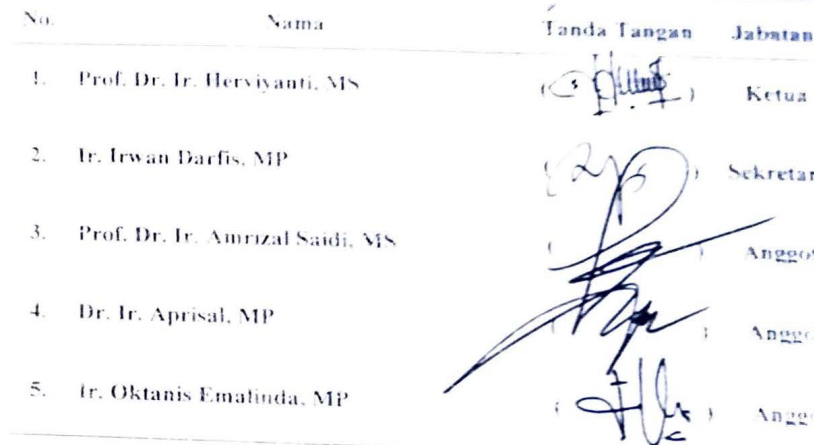 No. Nama Tanda Tangan Jabatan
1. Prof. Dr. Ir. Herviyanti, MS ( ) Ketua
2. Ir. Irwan Darfis, MP ( ) Sekretar
3. Prof. Dr. Ir. Amrizal Saidi, MS ( ) Anggot
4. Dr. Ir. Aprisal, MP ( ) Anggo
5. Ir. Oktanis Emalinda, MP ( ) Anggo